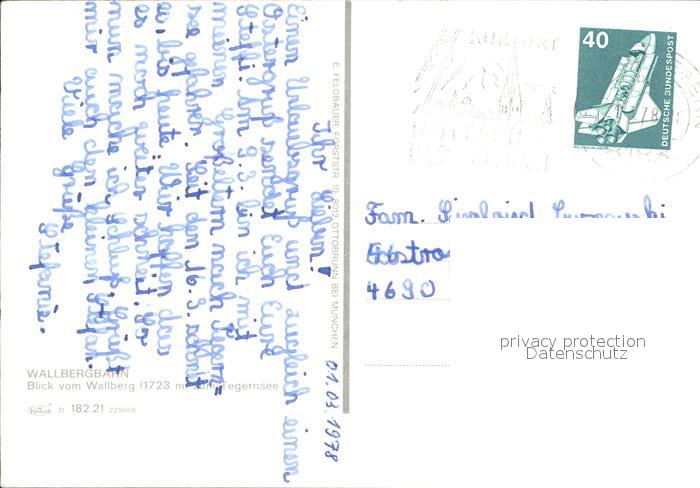 01.03.1978
Ihr Lieben!
Einen Urlaubsgruß und zugleich einen
Ostergruß sendet Euch Eure
Steffi. Am 9.3. bin ich mit
meinen Großeltern nach
gefahren. Seit dem 16.3. schneit
es bis heute. Wir hoffen das
es noch weiter schneit. So
nun mache ich Schluß. Grüßt
mir auch den kleinen
Viele Grüße
Stefanie.
WALLBERGBAHN
Blick vom Wallberg (1723 m) zum Tegernsee
31 182.21 229068
E. FELDBAUER, FORSTSTR. 10, 8012 OTTOBRUNN BEI MÜNCHEN
KURORT
40
DEUTSCHE BUNDESPOST
Fam.
4690
privacy protection
Datenschutz